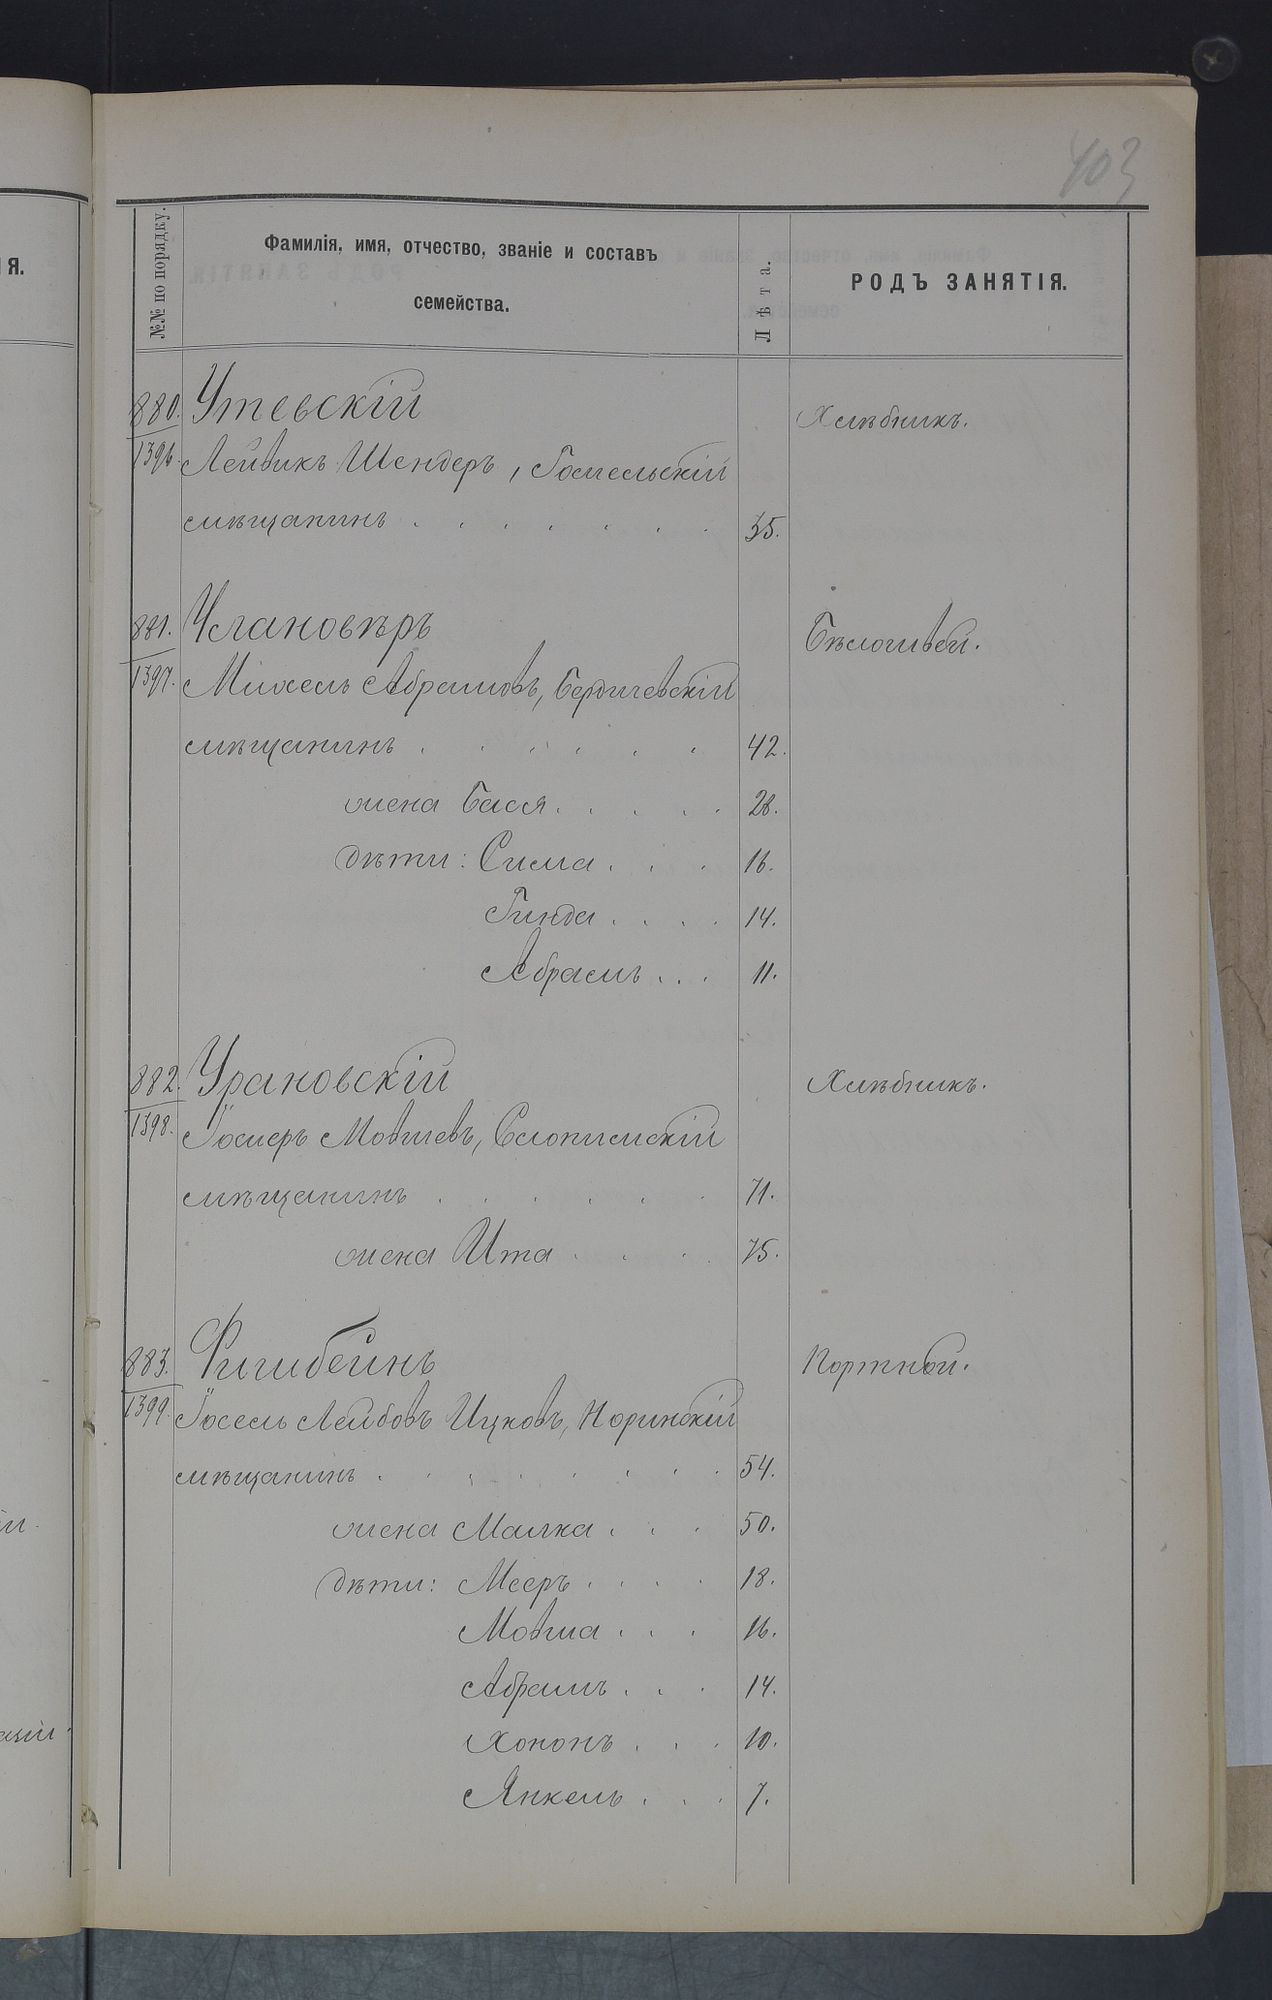 403
№№ по порядку.
Фамилія, имя, отчество, званіе и составъ
семейства.
Лѣта.
РОДЪ ЗАНЯТІЯ.
ІЯ.
880. Утевскій Хлѣбникъ.
1396. Лейвикъ Шендеръ, Гомельскій
мѣщанинъ . . . . . . . 35.
881. Улановѣръ Бѣлошвей.
1397. Михель Абрамовъ, Бердичевскій
мѣщанинъ . . . . . . 42.
жена Бася . . . . . 28.
дѣти: Сима . . . 16.
Гинда . . . . 14.
Абрамъ . . . 11.
882. Урановскій Хлѣбникъ.
1398. Мовшевъ,
мѣщанинъ . . . . . . 71.
жена Ита . . . . 75.
883. Фишбейнъ Портной.
1399. Іосель Лейбовъ Ицковъ, Норинскій
мѣщанинъ . . . . . . . . 54.
жена Малка . . . 50.
дѣти: Мееръ . . . . 18.
Мовша . . . 16.
Абрамъ . . . 14.
Хононъ . . . 10.
Янкель . . . 7.